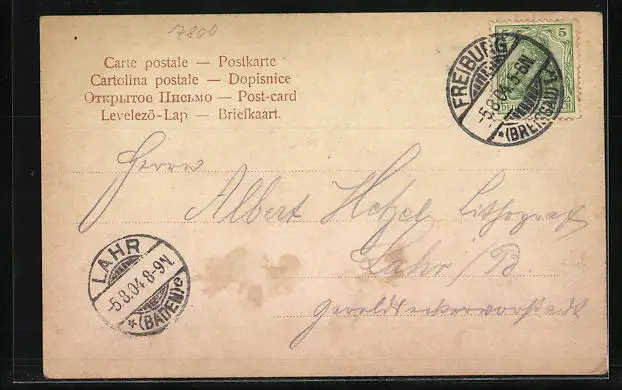 7800
Carte postale — Postkarte
Cartolina postale — Dopisnice
Открытое Письмо — Post-card
Levelezö-Lap — Briefkaart.
5
FREIBURG
5.8.04.5-6N
*(BREISGAU)
Herrn
Albert Hetzel Lithograf
Lahr i/B.
Geroldseckervorstadt
LAHR
-5.8.04.8-9N.
*(BADEN)c